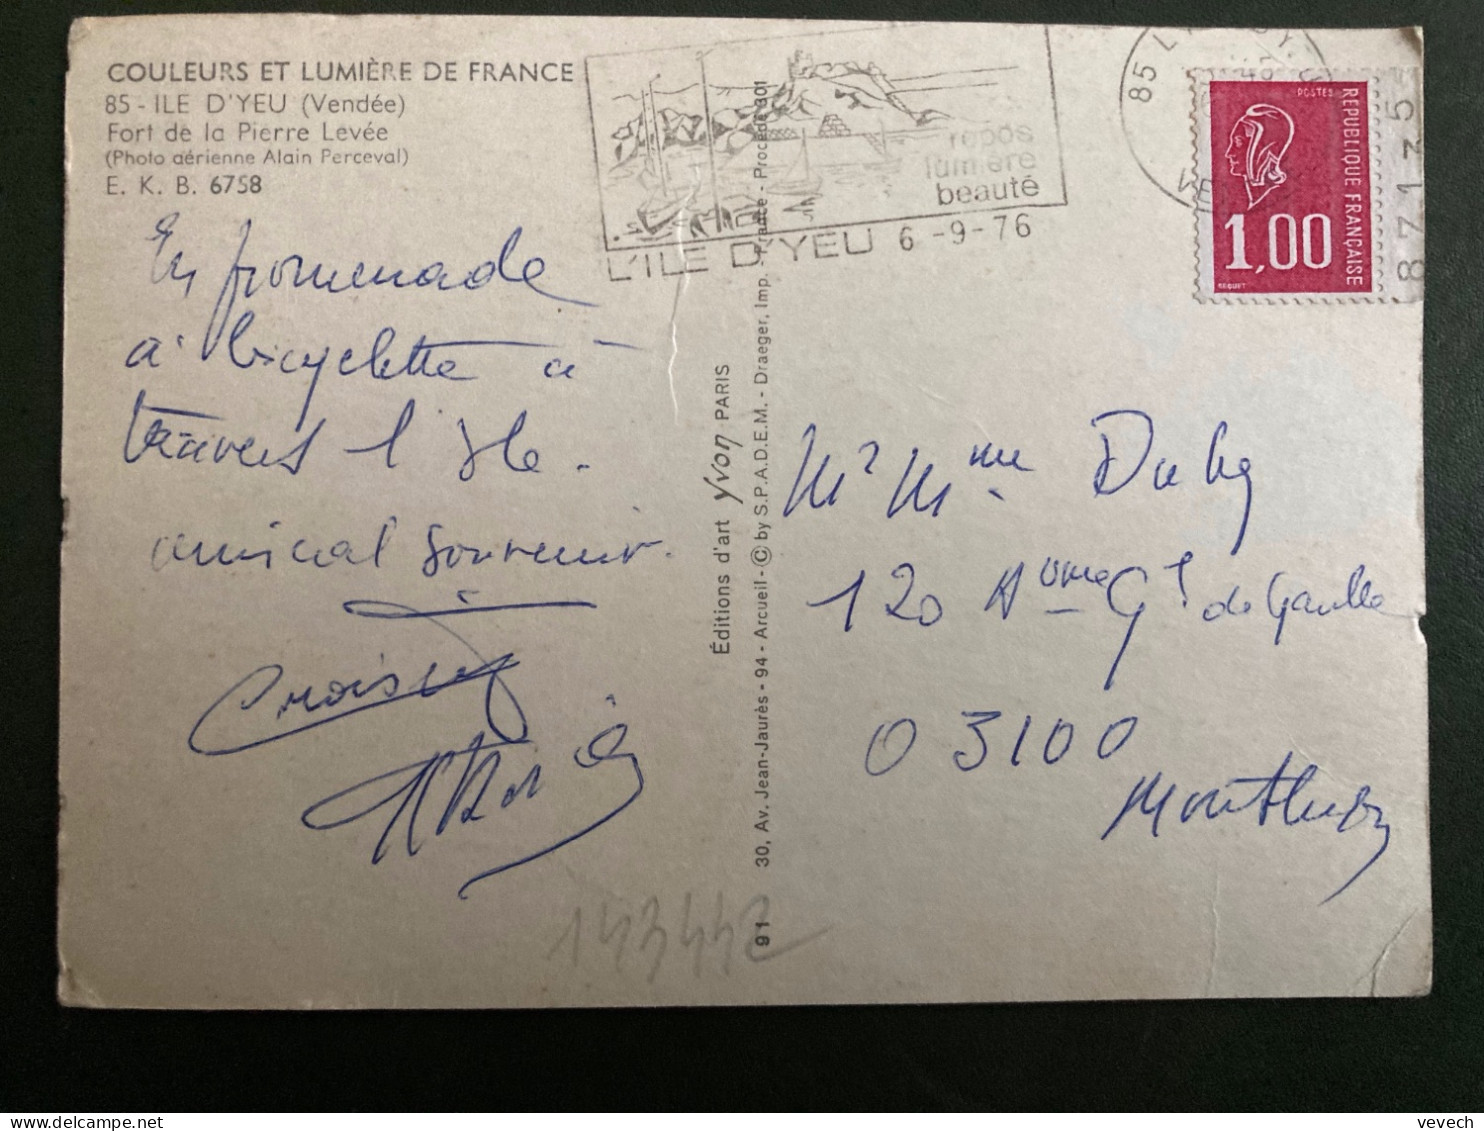 COULEURS ET LUMIÈRE DE FRANCE
85 - ILE D'YEU (Vendée)
Fort de la Pierre Levée
(Photo aérienne Alain Perceval)
E. K. B. 6758
En promenade
à bicyclette à
travers l'Ile.
amical souvenir.
repos
lumière
beauté
L'ILE D'YEU 6-9-76
85
POSTES
REPUBLIQUE FRANÇAISE
1,00
BEQUET
Éditions d'art Yvon PARIS
91 30, Av. Jean-Jaurès - 94 - Arcueil - © by S.P.A.D.E.M. - Draeger, Imp. - France - Procédé 301
Mr Mme
120 Gl de Gaulle
03100
Montluçon
143442
vevech